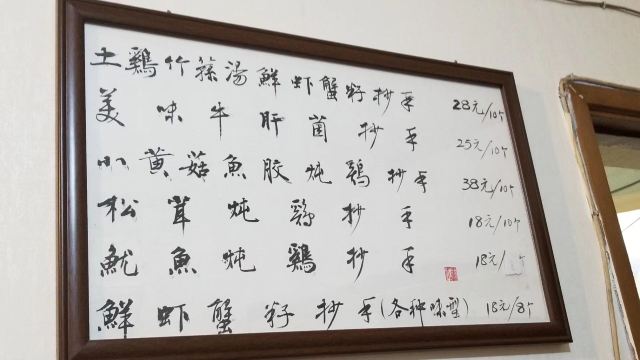 土鷄竹蓀湯鮮虾蟹籽抄手 28元/10个
美味牛肝菌抄手 25元/10个
小黄菇魚胶炖鷄抄手 38元/10个
松茸炖鷄抄手 18元/10个
魷魚炖鷄抄手 18元/个
鮮虾蟹籽抄手(各种味型) 18元/8个